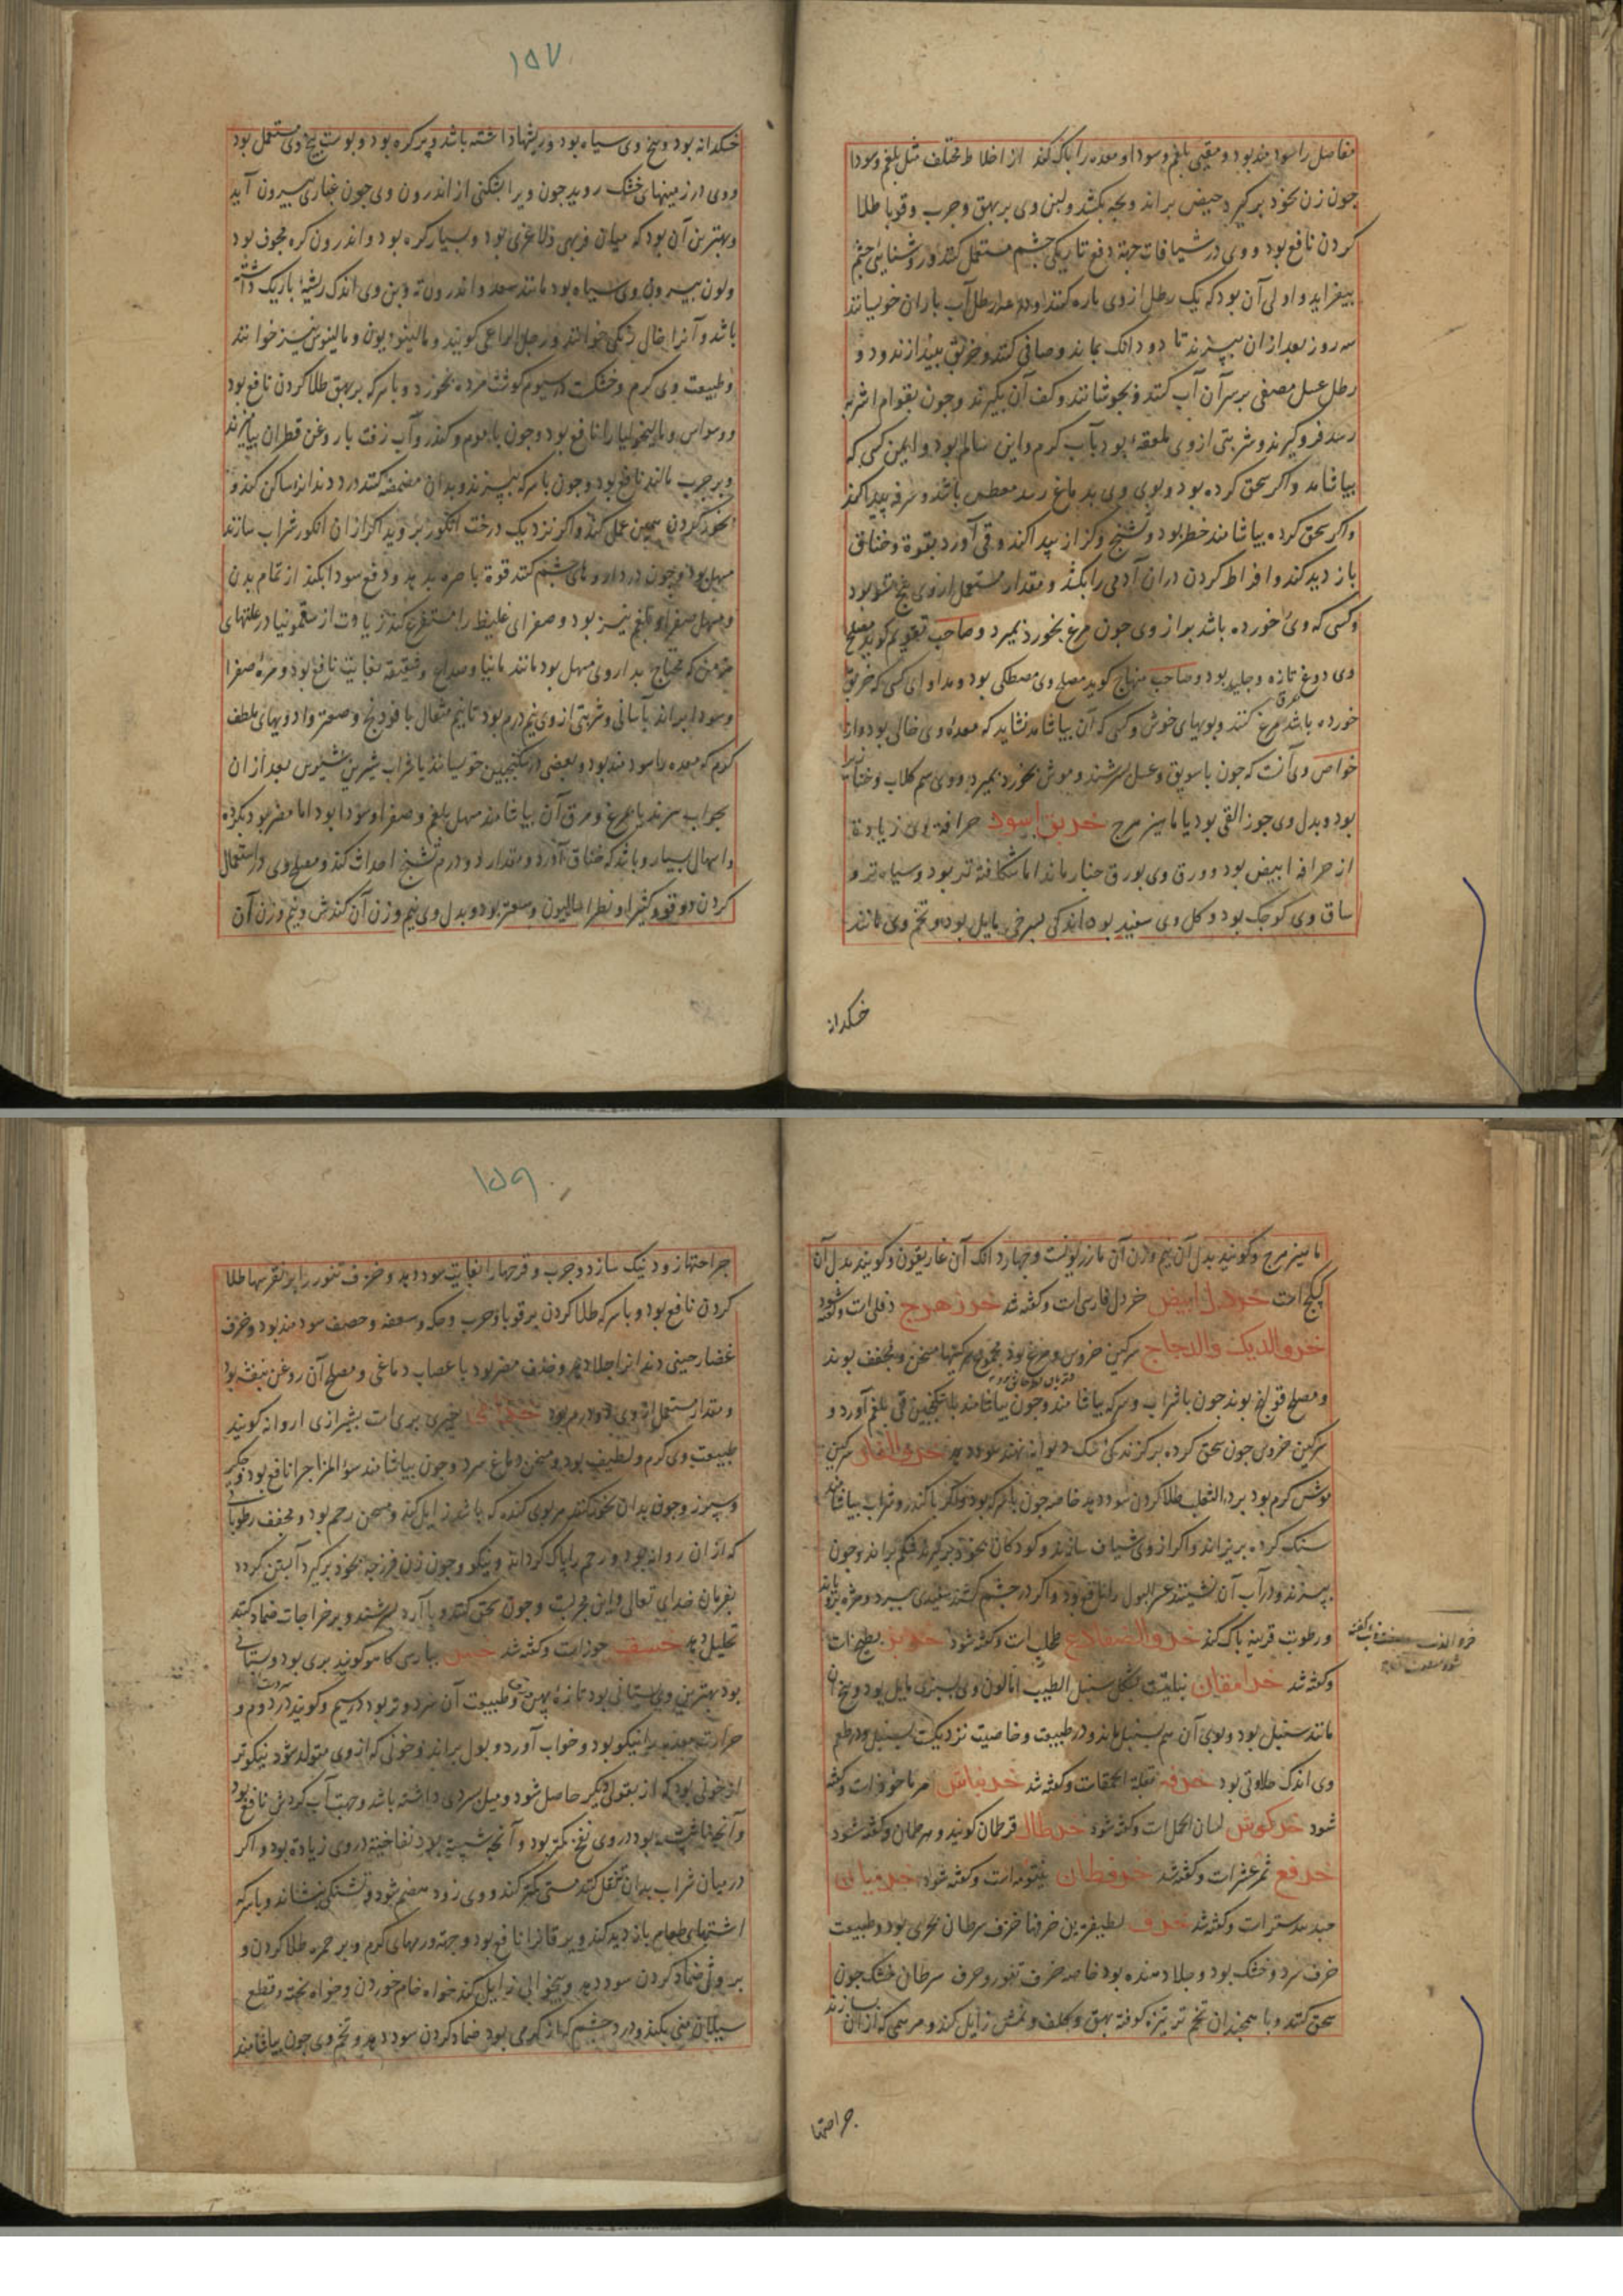 مفاصل را سود مند بود و مقیی بلغم و سودا و معده را پاک کند از اخلاط مختلف مثل بلغم و سودا
چون زن بخود برگیرد حیض براند و بچه بکشد و لبن وی بر بهق و جرب و قوبا طلا
کردن نافع بود و وی در شیافات جهة دفع تاریکی چشم مستعمل کنند و روشنایی چشم
بیفزاید و اولی آن بود که یک رطل از وی پاره کنند و در رطل آب باران خویسانند
سه روز بعد از آن بپزند تا دو دانک بماند و صافی کنند و خربق بیندازند و دو
رطل عسل مصفی بر سر آن آب کنند و بجوشانند و کف آن بگیرند و چون بقوام اشربه
رسد فرو گیرند و شربتی از وی ملعقه بود بآب گرم و این سالم بود و ایمن کسی که
بیاشامد و اگر سحق کرده بود و بوی وی بدماغ رسد معطس باشد و سرفه پیدا کند
و اگر سحق کرده بیاشامند خطر بود و تشنج و کزاز پیدا کند و قی آورد بقوة و خناق
باز دید کند و افراط کردن در آن آدمی را بکشد و مقدار مستعمل از وی
و کسی که وی خورده باشد براز وی چون مرغ بخورد بمیرد و صاحب تقویم گوید مصلح
وی دوغ تازه و جلید بود و صاحب منهاج گوید مصلح وی مصطکی بود و مداوای کسی که خربق
خورده باشد مرق مرغ کنند و بویهای خوش و کسی که آن بیاشامد نشاید که معده وی خالی بود و از
خواص وی آنست که چون با سویق و عسل بسرشند و موش بخورد بمیرد و وی سم کلاب و خنازیر
بود و بدل وی جوز القی بود یا ماهیز مرج خربق اسود حرافة وی زیادة
از حرافة ابیض بود و ورق وی بورق خیار ماند اما شکافته تر بود و سیاه تر و
ساق وی کوچک بود و گل وی سفید بود اندکی بسرخی مایل بود و تخم وی مانند
خسکدانه
۱۵۷
خسکدانه بود و بیخ وی سیاه بود و ریشها داشته باشد و پر گره بود و پوست بیخ وی مستعمل بود
و وی در زمینهای خشک روید چون ویرا بشکنی از اندرون وی چون غباری بیرون آید
و بهترین آن بود که میان فربهی و لاغری بود و بسیار گره بود و اندرون گره مجوف بود
و لون بیرون وی سیاه بود مانند سعد و اندرون وی اندک ریشه باریک داشته
باشد و آنرا خال زنگی خوانند و رجل الراعی گویند و مالینیون و مالینوس نیز خوانند
و طبیعت وی گرم و خشکست در سیوم گوشت مرده بخورد و با سرکه بر بهق طلا کردن نافع بود
و وسواس و مالیخولیا را نافع بود و چون با موم و کندر و آب زفت با روغن قطران بیامیزند
و بر جرب مالند نافع بود و چون با سرکه بپزند و بدان مضمضه کنند درد دندانرا ساکن کند و
بخود کردن همین عمل کند و اگر نزدیک درخت انگور بروید اگر از آن انگور شراب سازند
مسهل بود و چون در داروهای چشم کنند قوة باصره بدهد و دفع سودا بکند از تمام بدن
و مسهل صفرا و بلغم نیز بود و صفرای غلیظ را مستفرغ کند زیادت از سقمونیا در علتهای
مزمن که محتاج بداروی مسهل بود مانند مانیا و صداع و شقیقه بغایت نافع بود و مرهٔ صفرا
و سودا براند بآسانی و شربتی از وی نیم درم بود تا نیم مثقال با فودنج و صعتر و ادویهای ملطف
گرم که معده را سود مند بود و بعضی در سکنجبین خویسانند یا شراب شیرین شبی بعد از آن
بجو آب بپزند یا بمرغ و مرق آن بیاشامند مسهل بلغم و صفرا و سودا بود اما مضر بود بگرده
و اسهال بسیار و باشد که خناق آورد و مقدار دو درم تشنج احداث کند و مصلح وی در استعمال
کردن دوقو و کثیرا و فطراسالیون و صعتر بود و بدل وی نیم وزن آن کندش و نیم وزن آن
ماهیز مرج و گویند بدل آن نیم وزن آن مازریونست و چهار دانک آن غاریقون و گویند بدل آن
کبیکج است خردل ابیض خردل فارسی است و گفته شد خرزهرج دفلی است و گفته شود
خرو الدیک والدجاج سرگین خروس و مرغ بود مجموع سرگینها مسخن و مجفف بوند
و مصلح قولنج بوند چون با شراب و سرکه بیاشامند و چون بیاشامند با سکنجبین قی بلغم آورد و
سرگین خروس چون سحق کرده بر گزندگی سگ دیوانه نهند سود دهد خرو الفار سرگین
موش گرم بود بر داء الثعلب طلا کردن سود دهد خاصه چون با سرکه بود و اگر با کندر و شراب بیاشامند
سنگ گرده بریزاند و اگر از وی شیاف سازند و کودکان بخود برگیرند شکم براند و چون
بپزند و در آب آن نشینند عسر البول را نافع بود و اگر در چشم کشند سفیدی ببرد و مژه برویاند
و رطوبت قرنیه پاک کند خرو الضفادع طحلب است و گفته شود خربز بطیخ است
و گفته شد خرامقان نباتیست بشکل سنبل الطیب اما لون وی بسبزی مایل بود و بیخ آن
مانند سنبل بود و بوی آن هم بسنبل ماند و در طبیعت و خاصیت نزدیکست بسنبل و در طعم
وی اندک حلاوتی بود خرفه بقلة الحمقا است و گفته شد خرنباش مرماخوز است و گفته
شود خرگوش لسان الحمل است و گفته شود خرطال قرطمان گویند و هرطمان و گفته شود
خرفع ثمر عشر است و گفته شد خرفطان ینتومه است و گفته شود خرمیان
جند بیدستر است و گفته شد خزف لطیفترین خزفها خزف سرطان بحری بود و طبیعت
خزف سرد و خشک بود و جلا دهنده بود خاصه خزف تنور و خزف سرطان خشک چون
سحق کنند و با همچندان تخم ترتیزه کوفته بهق و کلف و نمش زایل کند و مرهمی که از آن سازند
جراحتها
۱۵۹
جراحتها زود نیک سازد و جرب و قرحها را بغایت سود دهد و خزف تنور را بر نقرسها طلا
کردن نافع بود و با سرکه طلا کردن بر قوبا و جرب و حکه و سعفه و حصف سود مند بود و خزف
غضار چینی دندانرا جلا دهد و خزف مضر بود باعصاب دماغی و مصلح آن روغن بنفشه بود
و مقدار مستعمل از وی دو درم بود خیری بری است بشیرازی اروانه گویند
طبیعت وی گرم و لطیف بود و مسخن دماغ سرد و چون بیاشامند سوء المزاج را نافع بود و جگر
و سپرز و چون بدان بخور کنند هر بوی گنده که باشد زایل کند و مسخن رحم بود و مجفف رطوباتی
که از آن روانه بود و رحم را پاک گرداند و نیکو و چون زن فرزجه بخود برگیرد آبستن گردد
بفرمان خدای تعالی و این مجربست و چون سحق کنند و با آرد بسرشند و بر خراجات ضماد کنند
تحلیل دهد خسف جوز است و گفته شد خس بپارسی کاهو گویند بری بود و بستانی
بود بهترین وی بستانی بود تازه پهن و طبیعت آن سرد و تر بود در سیم و گویند در دوم و
حرارت معده را نیکو بود و خواب آورد و بول براند و خونی که از وی متولد شود نیکوتر
از خونی بود که از بقول دیگر حاصل شود و میل بسردی داشته باشد و جهت آب گردش نافع بود
و آنچه ناشسته بود در وی نفخ کمتر بود و آنچه شسته بود نفاخیت در وی زیادة بود و اگر
در میان شراب بدان تنقل کنند مستی کمتر کند و وی زود هضم شود و تشنگی بنشاند و با سرکه
اشتهای طعام باز دید کند و یرقانرا نافع بود و جهة ورمهای گرم و بر حمره طلا کردن و
بر وثی ضماد کردن سود دهد و بیخوابی زایل کند خواه خام خوردن و خواه پخته و قطع
سیلان منی بکند و درد چشم که از گرمی بود ضماد کردن سود دهد و تخم وی چون بیاشامند